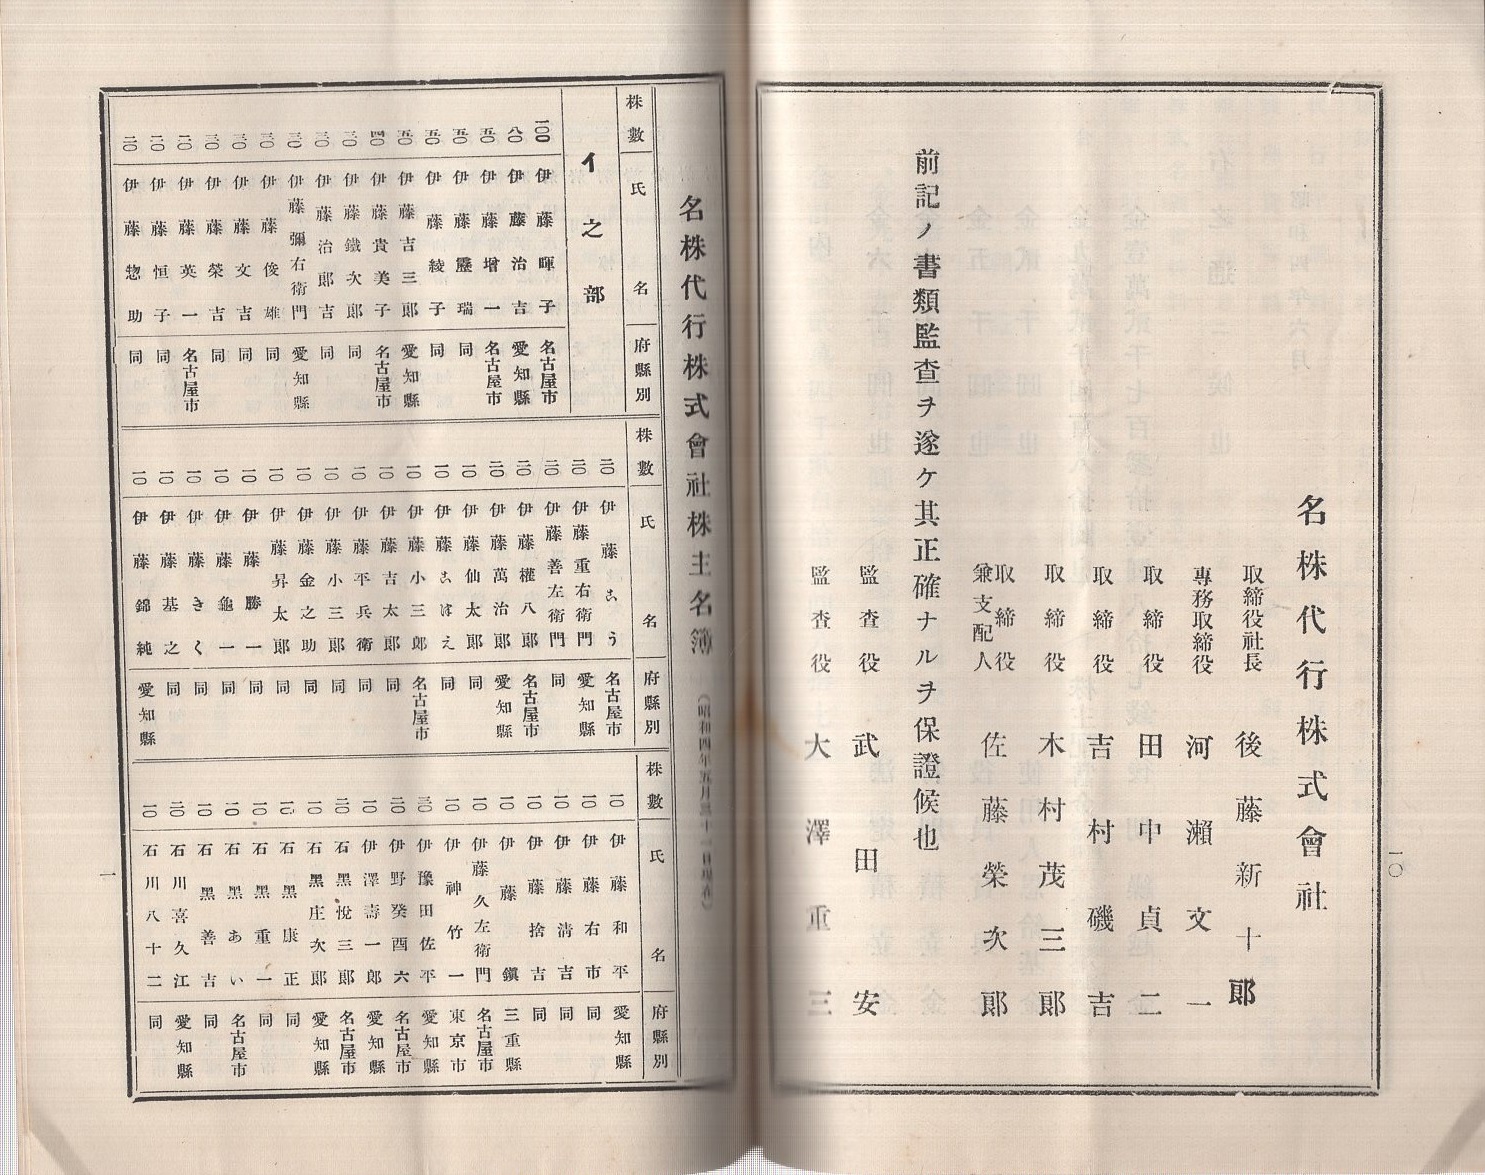 名株代行株式會社
取締役社長 後藤新十郎
專務取締役 河瀨文一
取締役 田中貞二
取締役 吉村磯吉
取締役 木村茂三郎
取締役兼支配人 佐藤榮次郎
前記ノ書類監査ヲ遂ケ其正確ナルヲ保證候也
監査役 武田安
監査役 大澤重三
一〇
名株代行株式會社株主名簿 (昭和四年五月三十一日現在)
株數 氏名 府縣別
イ之部
一〇〇 伊藤暉子 名古屋市
八〇 伊藤治吉 愛知縣
五〇 伊藤增一 名古屋市
五〇 伊藤塵瑞 同
五〇 伊藤綾子 同
五〇 伊藤吉三郎 愛知縣
四〇 伊藤貴美子 名古屋市
三〇 伊藤鐵次郎 同
三〇 伊藤治郎吉 同
三〇 伊藤彌右衛門 愛知縣
三〇 伊藤俊雄 同
三〇 伊藤文吉 同
三〇 伊藤榮吉 同
二〇 伊藤英一 名古屋市
二〇 伊藤恒子 同
二〇 伊藤惣助 同
株數 氏名 府縣別
二〇 伊藤こう 名古屋市
二〇 伊藤重右衛門 愛知縣
二〇 伊藤善左衛門 同
二〇 伊藤權八郎 名古屋市
二〇 伊藤萬治郎 愛知縣
一〇 伊藤仙太郎 同
一〇 伊藤こはえ 同
一〇 伊藤小三郎 名古屋市
一〇 伊藤吉太郎 同
一〇 伊藤平兵衛 同
一〇 伊藤小三郎 同
一〇 伊藤金之助 同
一〇 伊藤昇太郎 同
一〇 伊藤勝一 同
一〇 伊藤龜一 同
一〇 伊藤きく 同
一〇 伊藤基之 同
一〇 伊藤錦純 愛知縣
株數 氏名 府縣別
一〇 伊藤和平 愛知縣
一〇 伊藤右市 同
一〇 伊藤清吉 同
一〇 伊藤捨吉 同
一〇 伊藤鎭 三重縣
一〇 伊藤久左衛門 名古屋市
一〇 伊神竹一 東京市
三〇 伊豫田佐平 愛知縣
二〇 伊野癸酉六 名古屋市
一〇 伊澤壽一郎 愛知縣
二〇 石黑悅三郎 名古屋市
一〇 石黑庄次郎 愛知縣
一〇 石黑康正 同
一〇 石黑重一 同
一〇 石黑あい 名古屋市
一〇 石黑善吉 同
二〇 石川喜久江 愛知縣
一〇 石川八十二 同
一